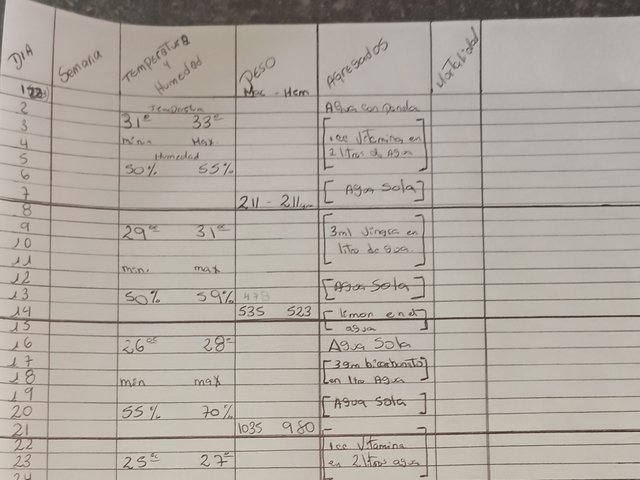 DIA Semana Temperatura y Humedad PESO Agregados Mortalidad
1 Mac - Hem
2 Temperatura Agua con panela
3 31° 33°
4 min. Max. 1cc Vitamina en
5 Humedad 2 litros de Agua
6 50% 55%
7 [Agua Sola]
8 211 - 211gm
9 29° 31° 3ml vinagre en
10 litro de agua.
11 min. max
12 [Agua Sola]
13 50% 59% 478
14 535 523 [limon en el
15 agua]
16 26° 28° Agua Sola
17 [3gm bicarbonato
18 min max en 1 ltro Agua]
19 [Agua Sola]
20 55% 70%
21 1035 980
22 1cc Vitamina
23 25° 27° en 2 litros agua
24